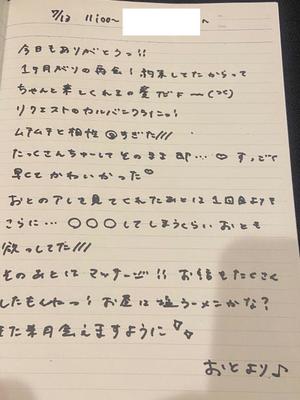 7/13 11:00〜 へ
今日もありがとうっ!!
1ヶ月ぶりの再会!約束してたからって
ちゃんと来てくれるの愛だよ〜
リクエストのカルバンクラインっ!
ムチムチと相性◎すぎた///
たっくさんちゅーしてそのまま即…♡すっごく
早くてかわいかった♡
おとのアレして見てくれたあとは1回目よりも
さらに…○○○してしまうくらいおとも
欲っしてた///
そのあとはマッサージ!!お話もたくさん
したもんねっ!お昼は塩ラーメンかな?
また来月会えますように
おとより♪